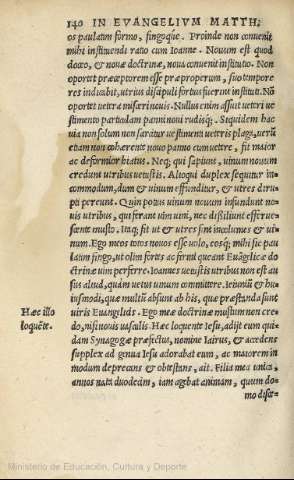 140 IN EVANGELIVM MATTH.
os paulatim formo, fingoque. Proinde non conuenit
mihi instituendi ratio cum Ioanne. Nouum est quod
doceo, & nouæ doctrinæ, noua conuenit institutio. Non
oportet præceptorem esse præproperum, suo tempore
res indicabit, utrius discipuli fortius fuerint instituti. Nō
oportet uetera misceri nouis. Nullus enim assuit ueteri ue
stimento particulam panni noui rudisq;. Siquidem hac
uia non solum non sarcitur uestimenti ueteris plaga, uerū
etiam non cohærente nouo panno cum uetere, fit maior
ac deformior hiatus. Neq; qui sapiunt, uinum nouum
credunt utribus uetustis. Alioqui duplex sequitur in-
commodum, dum & uinum effunditur, & utres dirup-
ti pereunt. Quin potius uinum nouum infundunt no-
uis utribus, qui ferant uim uini, nec dissiliant efferue-
scente musto. Itaq; fit ut & utres sint incolumes & ui-
num. Ego meos totos nouos esse uolo, eosq; mihi sic pau
latim fingo, ut olim fortes ac firmi queant Euāgelicæ do
ctrinæ uim perferre. Ioannes uetustis utribus non est au
sus aliud, quàm uetus uinum committere. Ieiuniū & hu
iusmodi, quæ multū absunt ab his, quæ præstanda sunt
uiris Euangelicis. Ego meæ doctrinæ mustum non cre-
do, nisi nouis uasculis. Hæc loquente Iesu, adijt eum qui-
dam Synagogæ præfectus, nomine Iairus, & accedens
supplex ad genua Iesu adorabat eum, ac maiorem in
modum deprecans & obtestans, ait. Filia mea unica,
annos nata duodecim, iam agebat animam, quum do-
mo disce-
Hæc illo
loquēte.
Ministerio de Educación, Cultura y Deporte